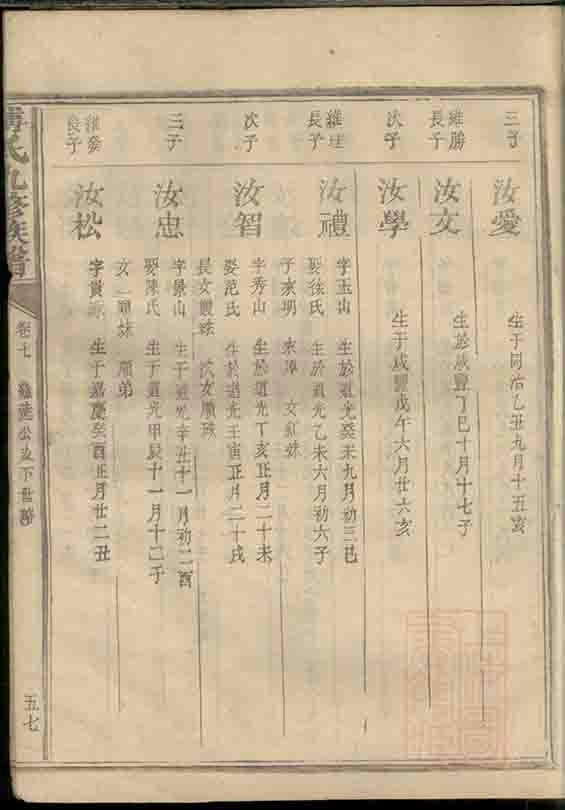 三子
汝愛
生于同治乙丑九月十五亥
維勝
長子
汝文
生於咸豐丁巳十月十七子
次子
汝學
生于咸豐戊午六月廿六亥
維
長子
汝禮
字玉山 生於道光癸未九月初三巳
娶徐氏 生於道光乙未六月初六子
子 明 女紅妹
次子
汝智
字秀山 生於道光丁亥正月二十未
娶范氏 生於道光壬寅正月二十戌
長女 妹 次女順妹
三子
汝忠
字景山 生于道光辛丑十一月初二酉
娶陳氏 生于道光甲辰十一月十二子
女一 妹 順弟
維
長子
汝松
字貴 生于嘉慶癸酉正月廿二丑
氏九修族譜
卷七
公以下世譜
五七